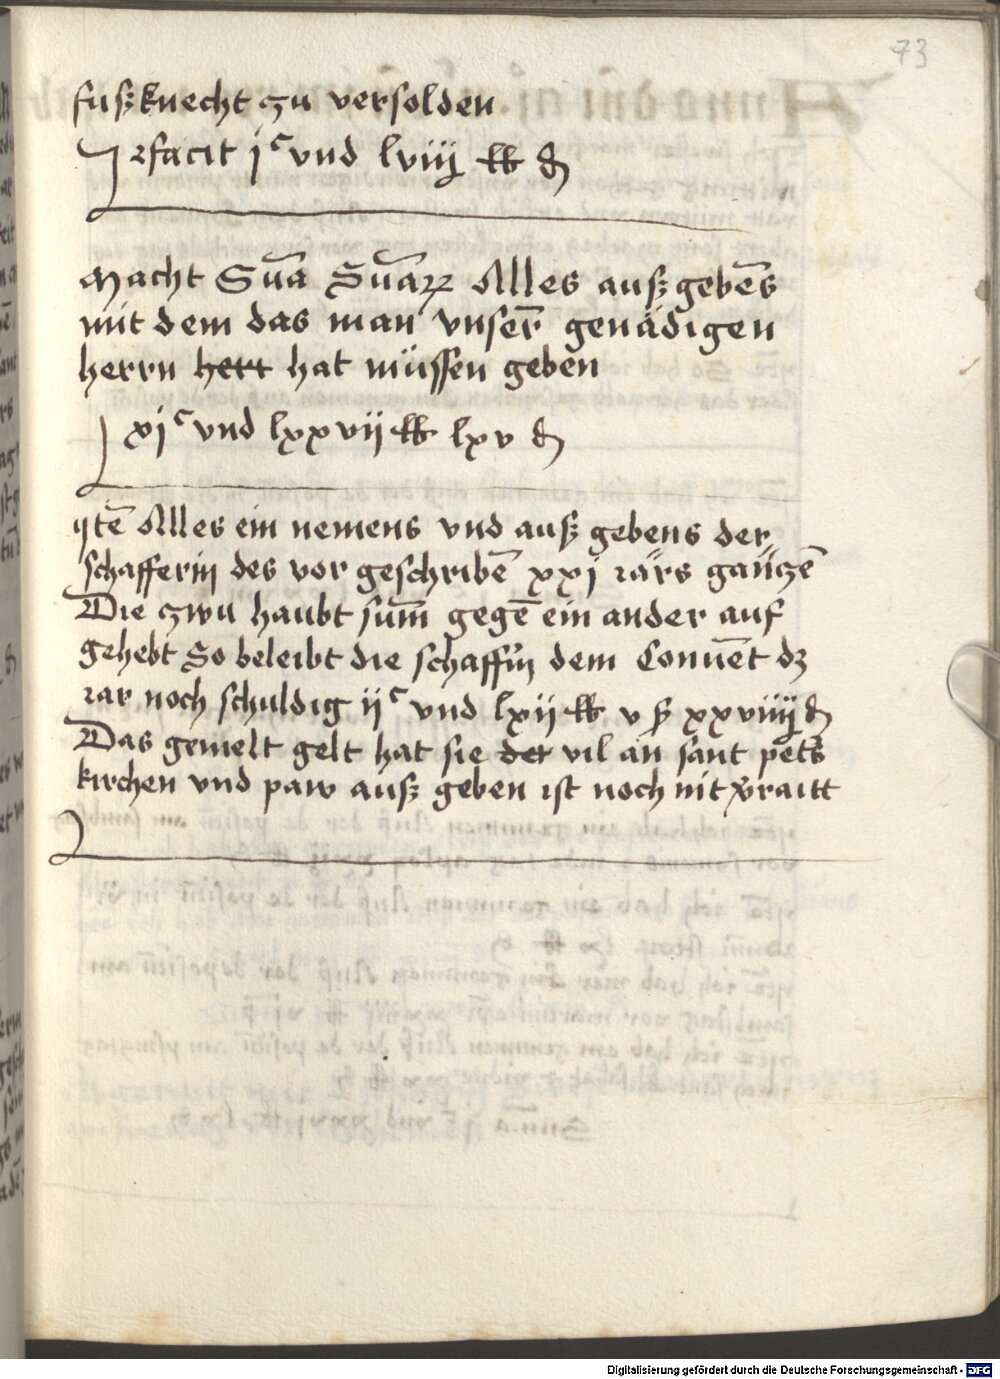 73
fußknecht zu versolden
facit jc vnd lviij lb d
Macht Suma Sumarum Alles außgebens
mit dem das man vnserm genädigen
herrn herr hat müssen geben
xjc vnd lxxvij lb lxv d
Itē Alles ein nemens vnd auß gebens der
schafferin des vor geschribē xxj iars ganczē
Die zwu haubt sum̄ gegē ein ander auf
gehebt So beleibt die schafferin dem Conuēt dz
iar noch schuldig ijc vnd lxij lb v ß xxviiij d
Das gemelt gelt hat sie der vil an sant peters
kirchen vnd paw auß geben ist noch nit verraitt
Digitalisierung gefördert durch die Deutsche Forschungsgemeinschaft - DFG